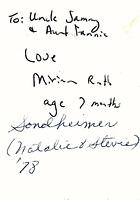 To: Uncle Sammy
& Aunt Fannie
Love
Miriam Ruth
age 7 months
Sondheimer
(Natalie & Stevie)
'78